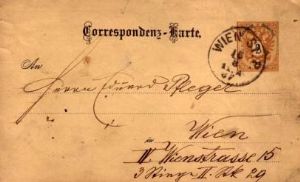 Correspondenz-Karte.
WIEN
An
Herrn Eduard Pflegel
Wien
IV Wienstrasse 15
3 Stiege II. Stk 29